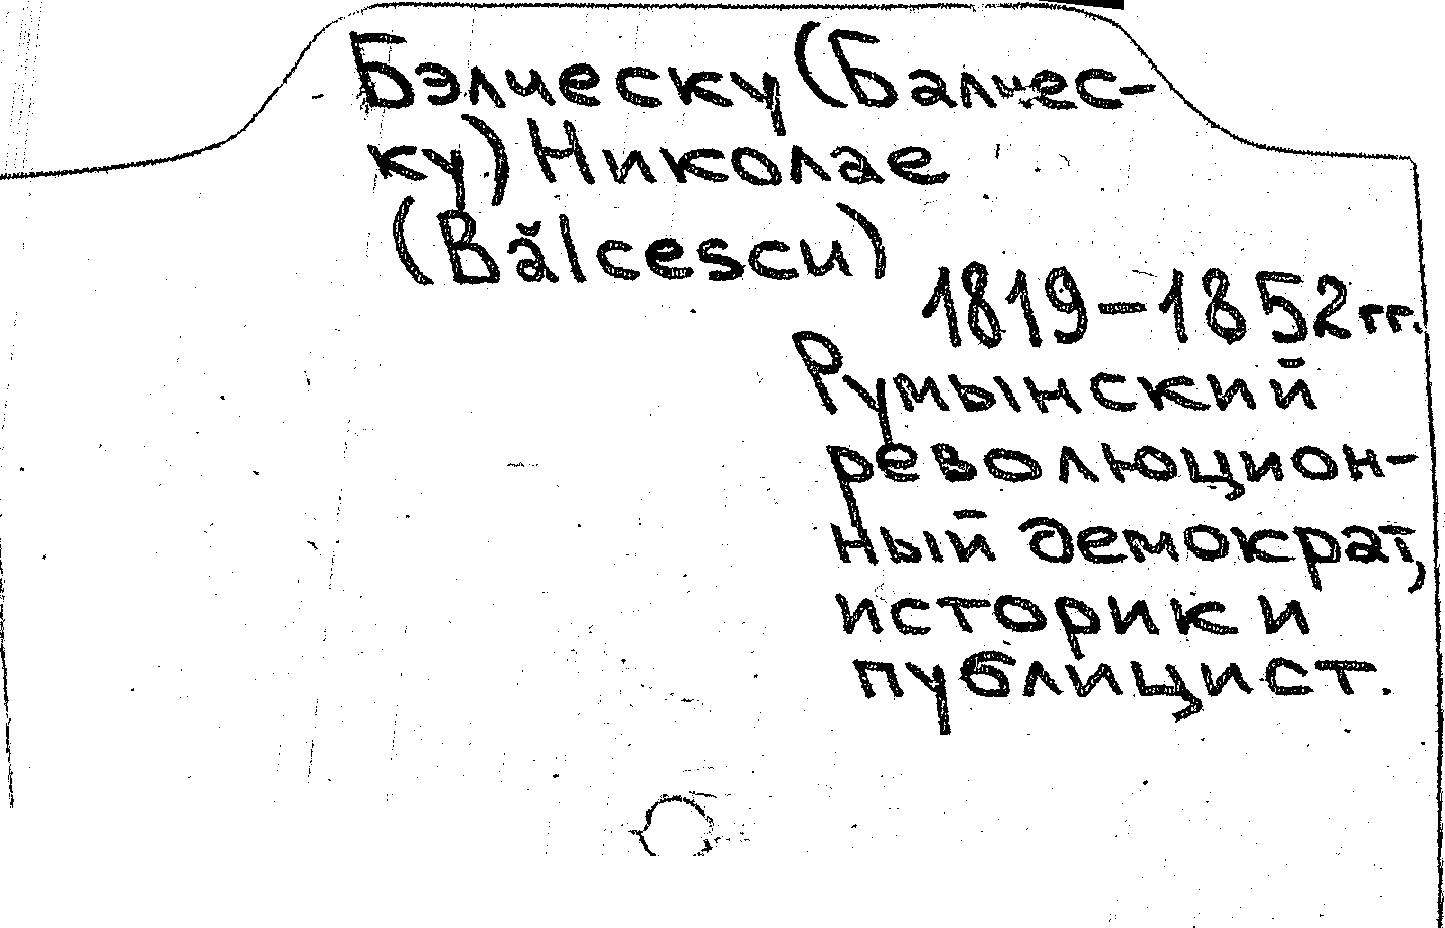 Бэлческу (Балчес-
ку) Николае
(Bălcescu)
1819-1852гг.
Румынский
революцион-
ный демократ,
историк и
публицист.